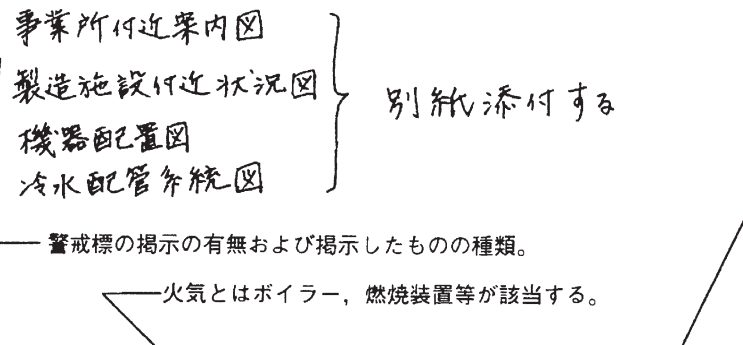 事業所付近案内図
製造施設付近状況図
機器配置図
冷水配管系統図
別紙添付する
警戒標の掲示の有無および掲示したものの種類。
火気とはボイラー，燃焼装置等が該当する。